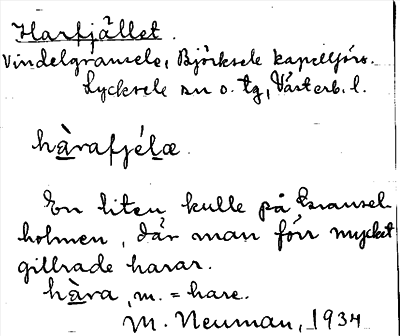 Harfjället.
Vindelgransele, Björksele kapellförs.
Lycksele sn o. tg, Västerb. l.
hàrafjélæ.
En liten kulle på Gransel-
holmen, där man förr mycket
gillrade harar.
hàra, m. = hare.
M. Neuman, 1934